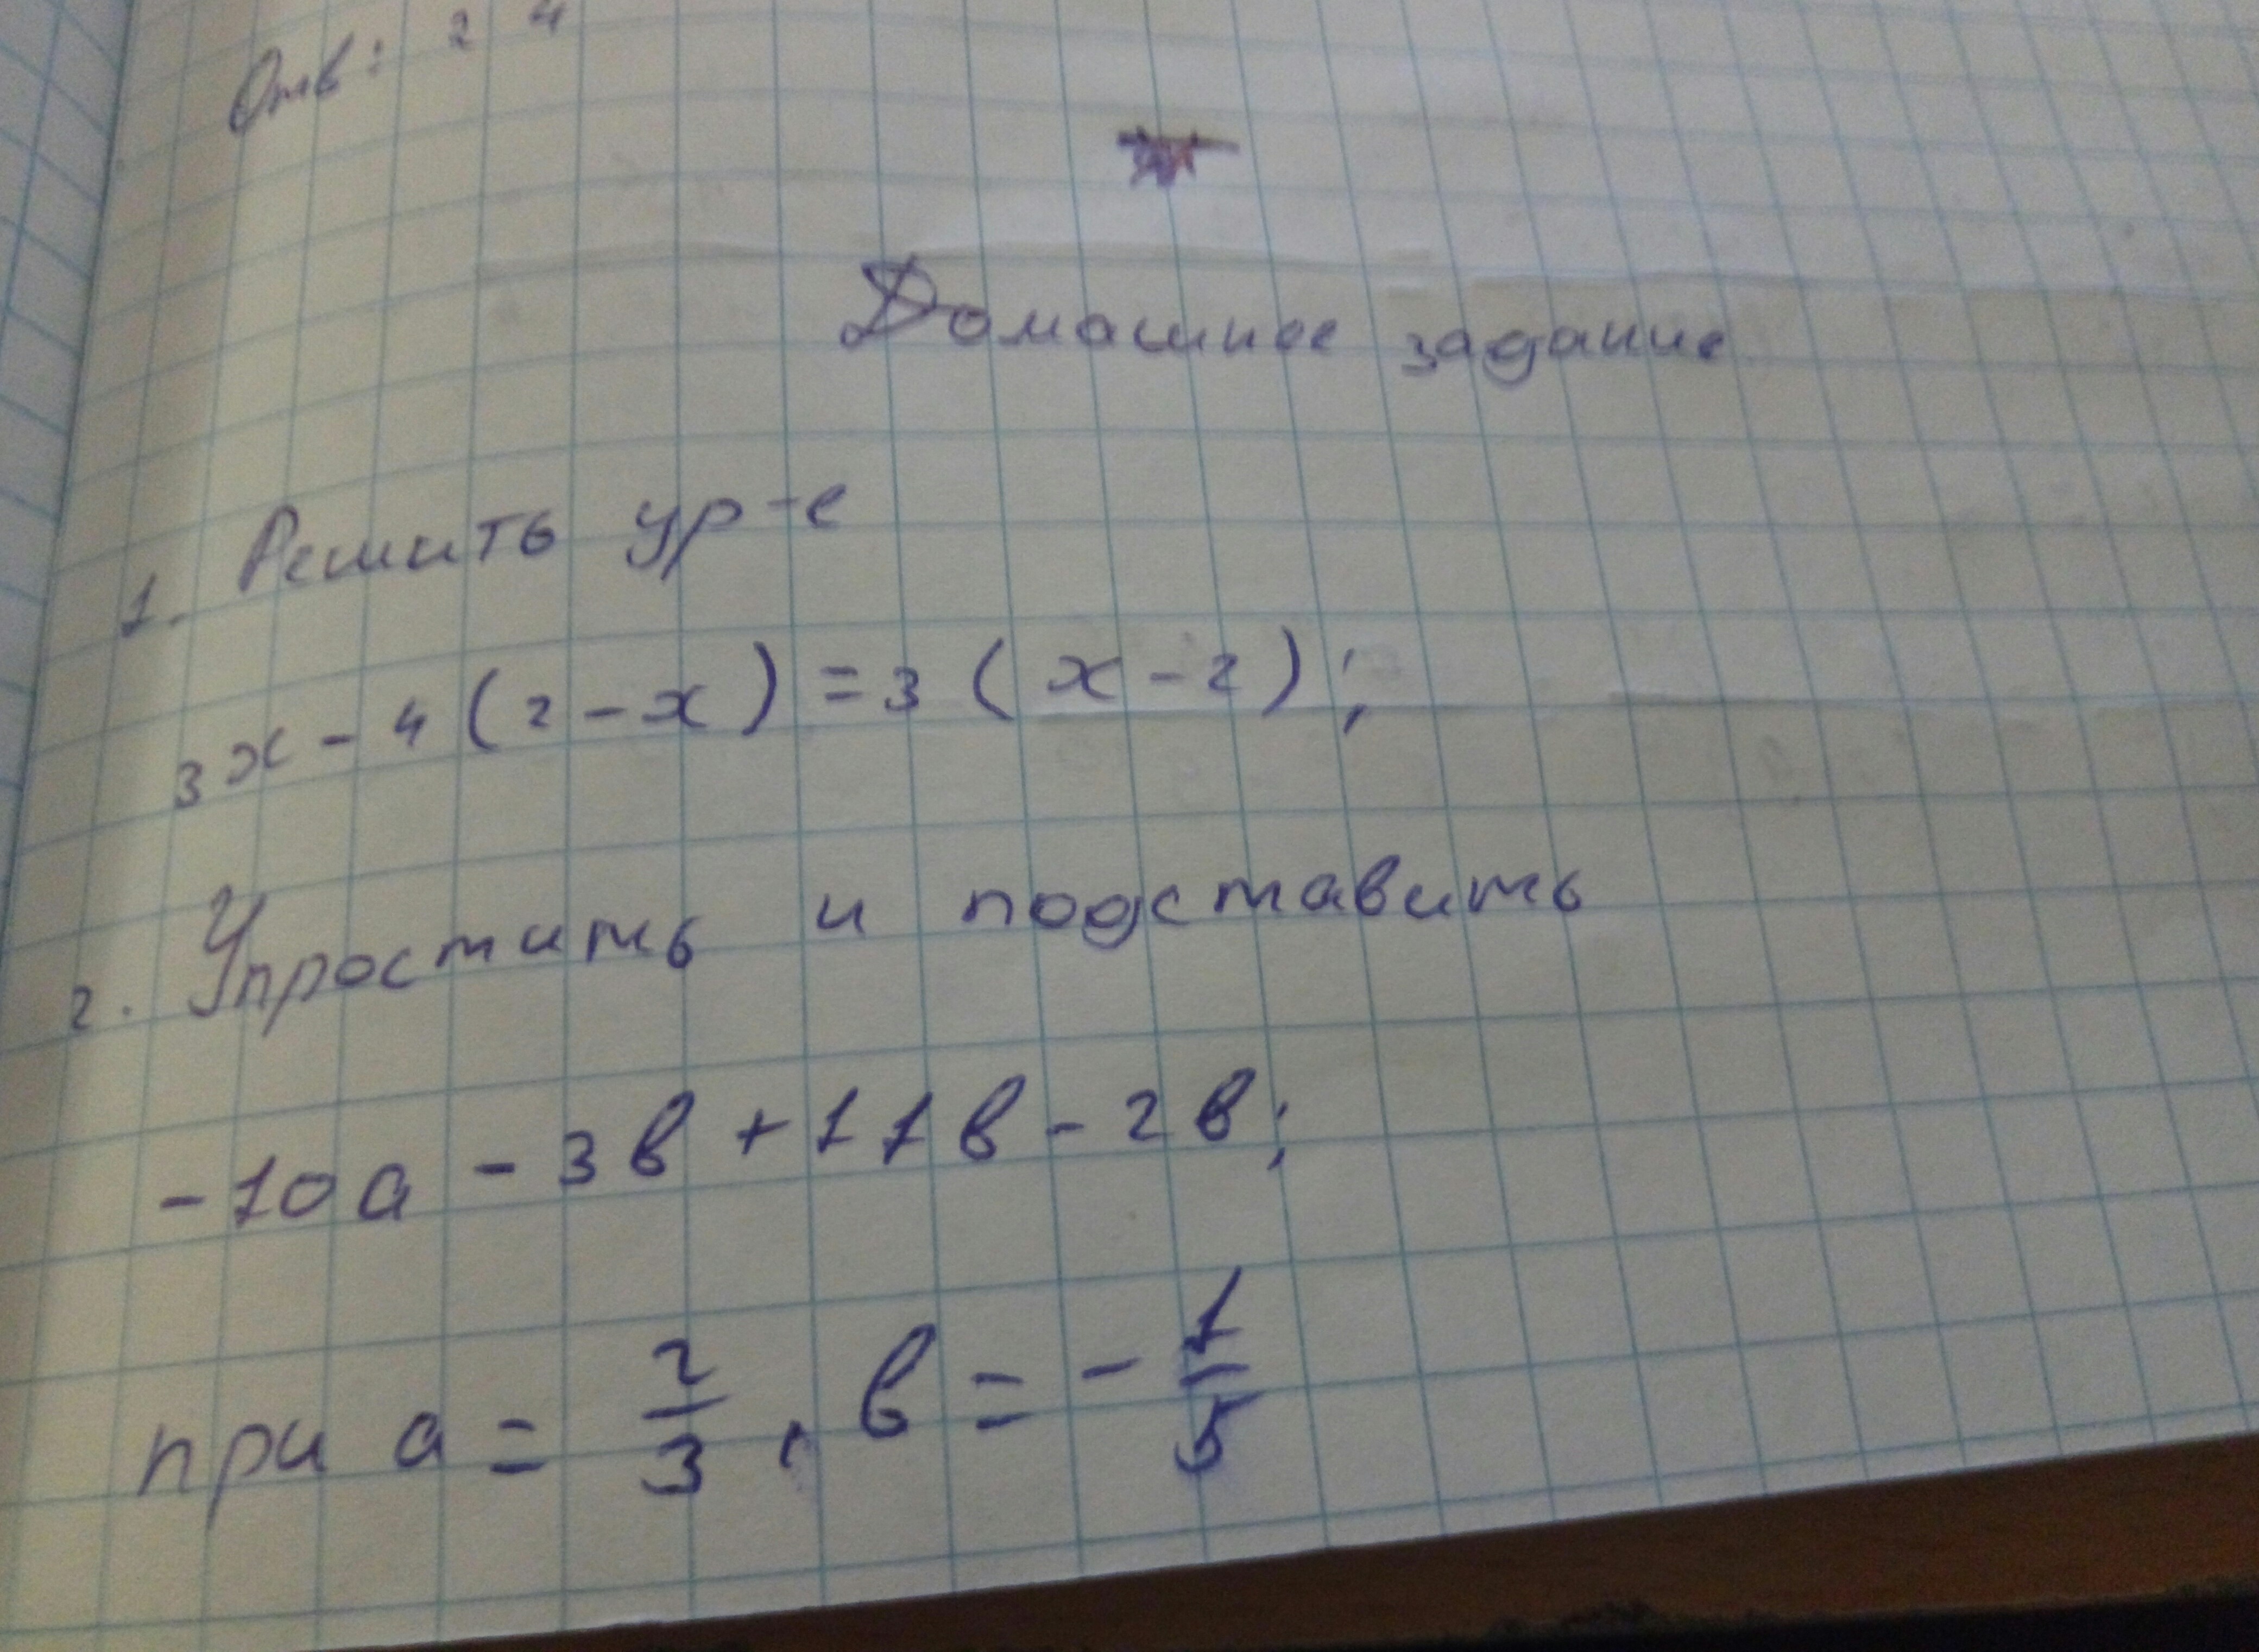 Отв: 2 4
Домашнее задание
1. Решить ур-е
3x - 4 (2 - x) = 3 (x - 2);
2. Упростить и подставить
-10а - 3в + 11в - 2в;
при а = 2/3, в = - 1/5